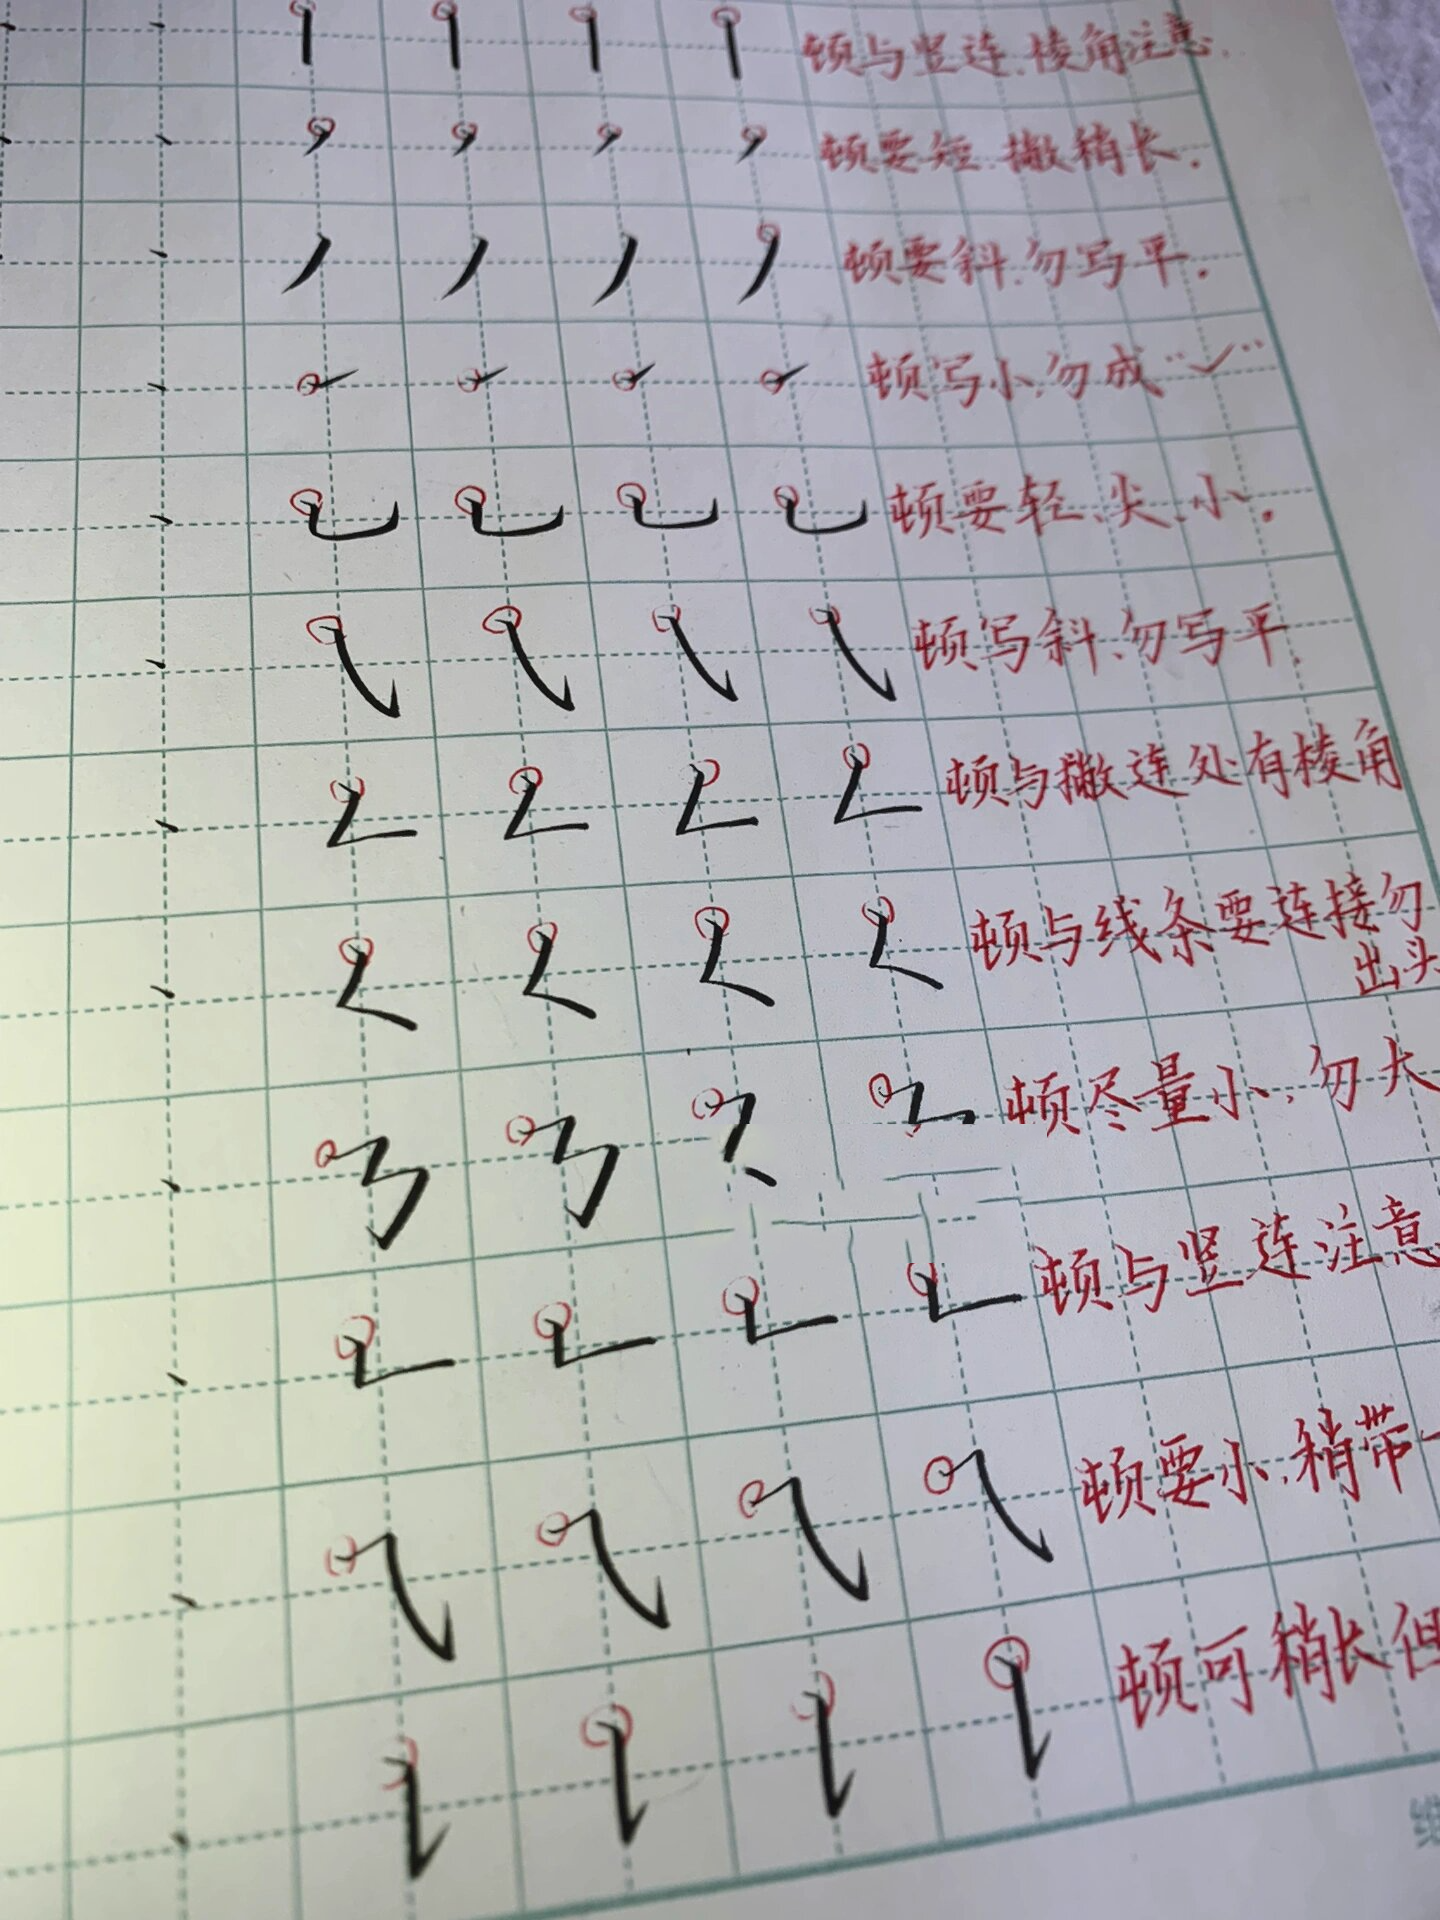 顿与竖连.棱角注意.
顿要短.撇稍长.
顿要斜.勿写平.
顿写小.勿成“✓”
顿要轻、尖、小.
顿写斜、勿写平.
顿与撇连处有棱角
顿与线条要连接勿
出头
顿尽量小、勿大
顿与竖连注意
顿要小、稍带
顿可稍长但